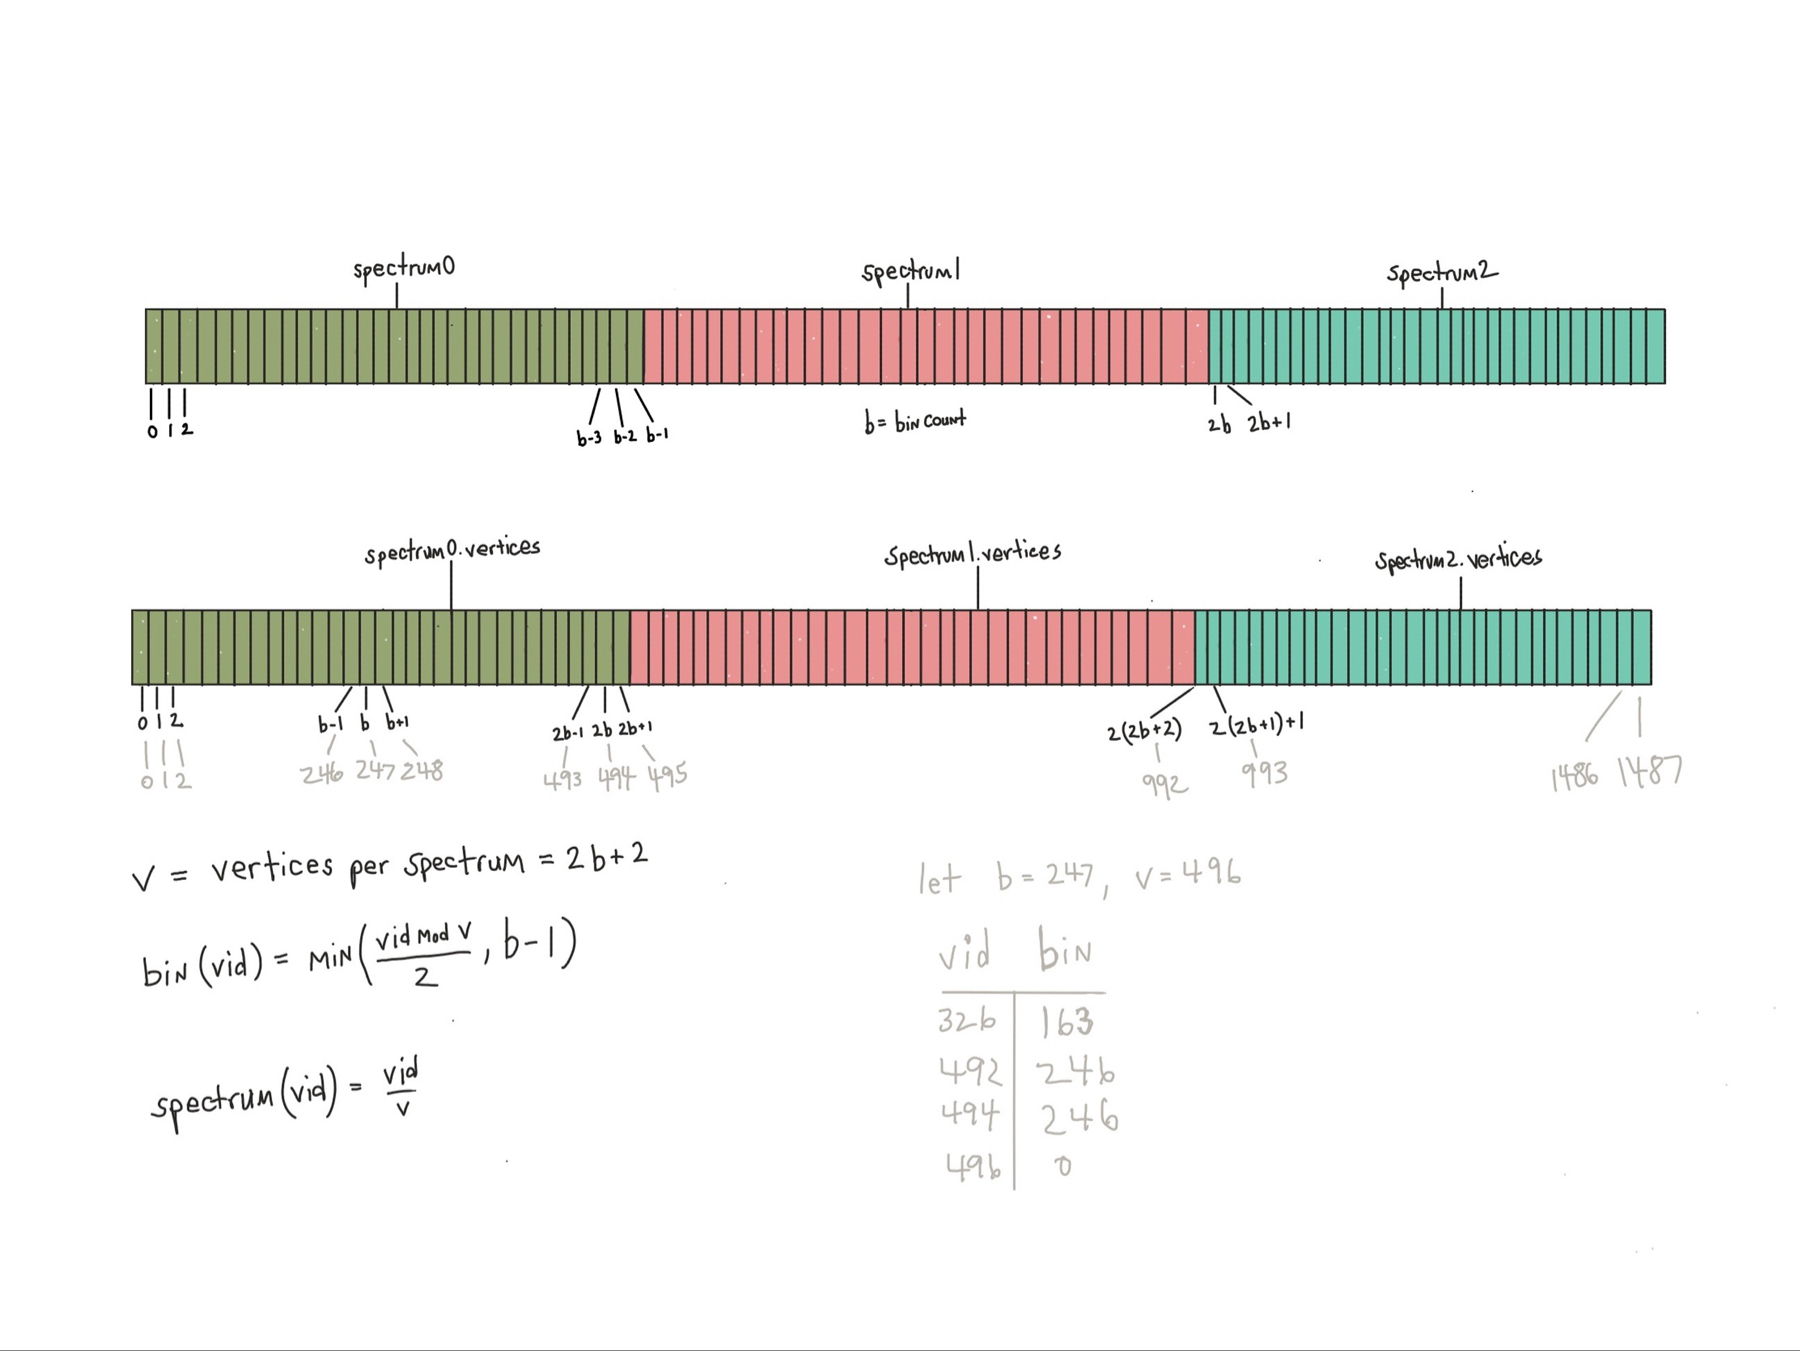 spectrum0 spectrum1 spectrum2
0 1 2 b-3 b-2 b-1 b= bin count 2b 2b+1
spectrum0.vertices spectrum1.vertices spectrum2.vertices
0 1 2 b-1 b b+1 2b-1 2b 2b+1 2(2b+2) 2(2b+1)+1
0 1 2 246 247 248 493 494 495 992 993 1486 1487
v = vertices per spectrum = 2b+2
bin(vid) = min(vid mod v / 2, b-1)
spectrum(vid) = vid / v
let b = 247, v = 496
vid bin
326 163
492 246
494 246
496 0